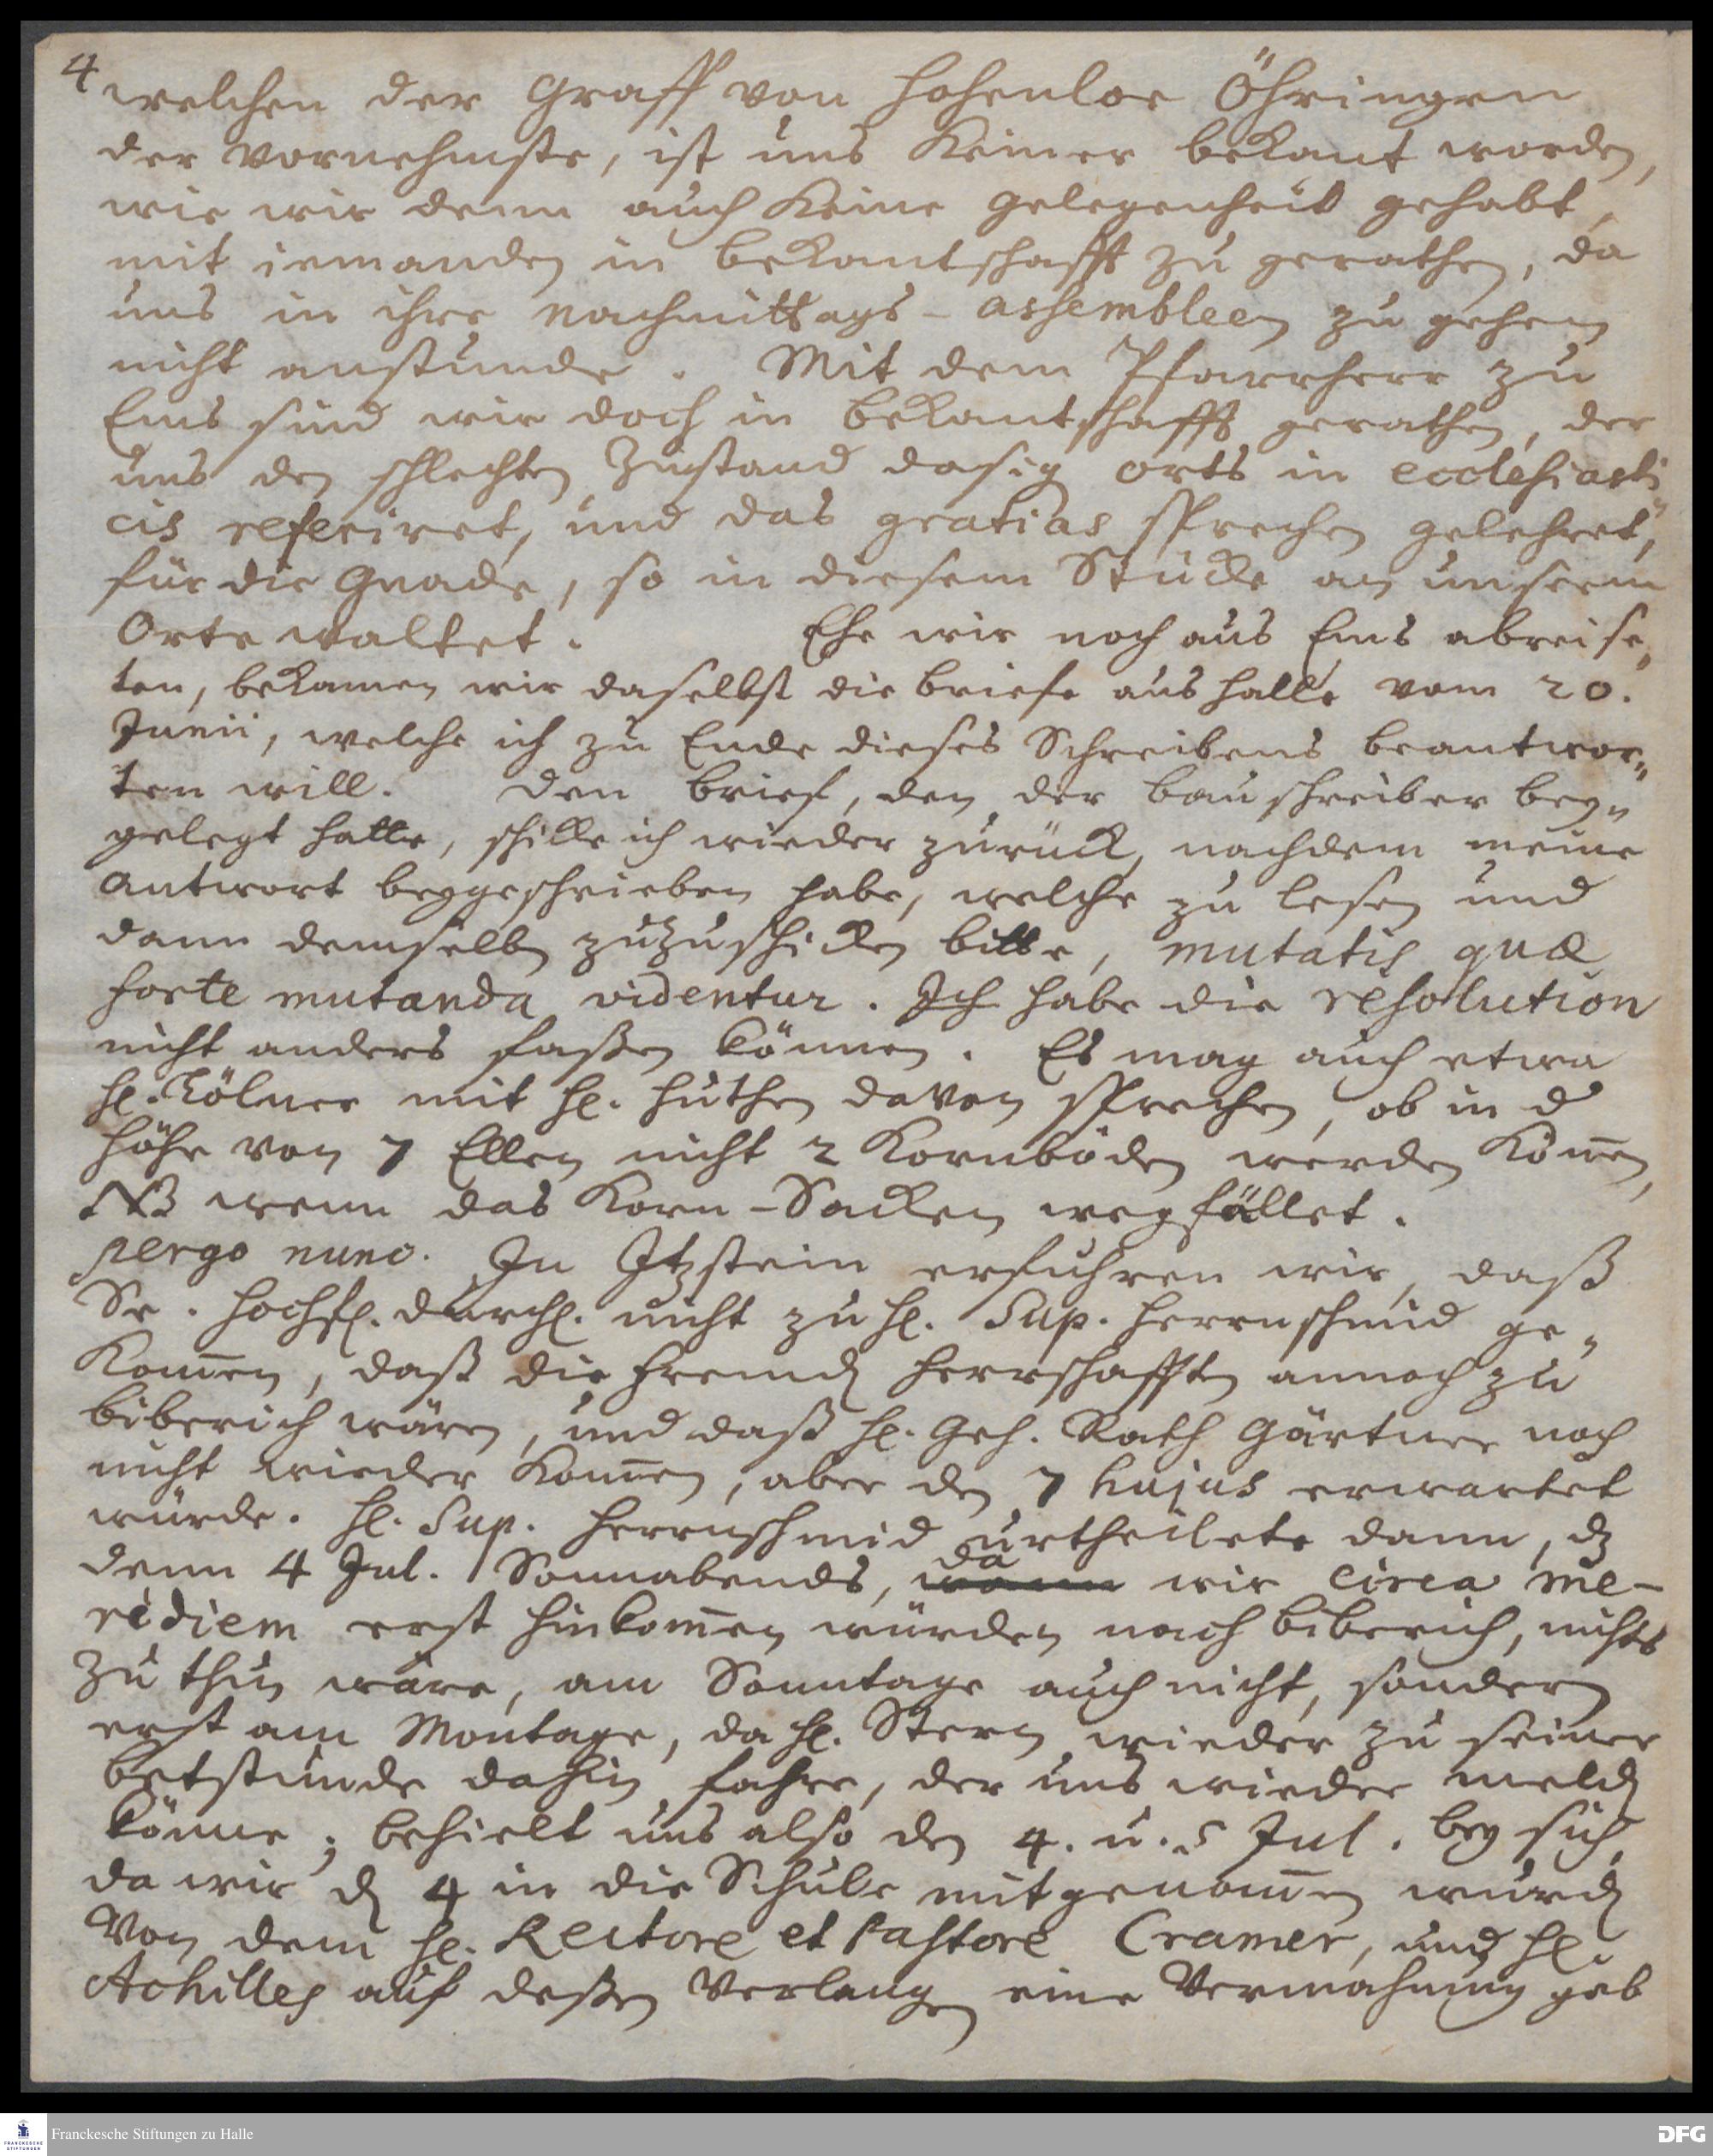 4
welchen der Graff von Hohenloe Öhringen
der Vornehmste, ist uns keiner bekant worden,
wie wir denn auch keine Gelegenheit gehabt,
mit iemanden in bekantschafft zu gerathen, da
uns in ihre Nachmittags-assembleen zu gehen
nicht anstunde. Mit dem Pfarrherr zu
Ems sind wir doch in bekantschafft gerathen, der
uns den schlechten Zustand dasig orts in ecclesiasti-
cis referiret, und das gratias sprechen gelehret,
für die Gnade, so in diesem Stücke an unserm
Orte waltet. Ehe wir noch aus Ems abreise-
ten, bekamen wir daselbst die briefe aus Halle vom 20.
Junii, welche ich zu Ende dieses Schreibens beantwor-
ten will. Den brief, den der bauschreiber bey-
gelegt hatte, schicke ich wieder zurück, nachdem meine
Antwort beygeschrieben habe, welche zu lesen und
dann demselben zuzuschicken bitte, mutatis quæ
forte mutanda videntur. Ich habe die resolution
nicht anders faßen können. Es mag auch etwa
H. Cölner mit H. Huthen davon sprechen, ob in d
Höhe von 7 Ellen nicht 2 Kornböden werden kön̄en,
NB wenn das Korn-Sacken wegfället.
pergo nunc. In Itzstein erfuhren wir, daß
Sr. Hochfl. Durchl. nicht zu H. Sup. Herrnschmid ge-
kom̄en, daß die fremden Herrschafften annoch zu
biberich wären, und daß H. Geh. Rath Gärtner noch
nicht wieder kom̄en, aber den 7 hujus erwartet
würde. H. Sup. Herrnschmid urtheilete dann, dz
denn 4 Jul. Sonnabends, wann da wir circa me-
ridiem erst hinkom̄en würden nach biberich, nichts
zu thun wäre, am Sonntage auch nicht, sondern
erst am Montage, da H. Stern wieder zu seiner
betstunde dahin fahre, der uns wieder melden
könne; behielt uns also den 4. u. 5 Jul. bey sich,
da wir den 4 in die Schule mitgenom̄en wurden
Von dem H. Rectore et Pastore Cramer, und H.
Achilles auf deßen Verlangen eine Vermahnung gab
Franckesche Stiftungen zu Halle
FRANCKESCHE
STIFTUNGEN
DFG